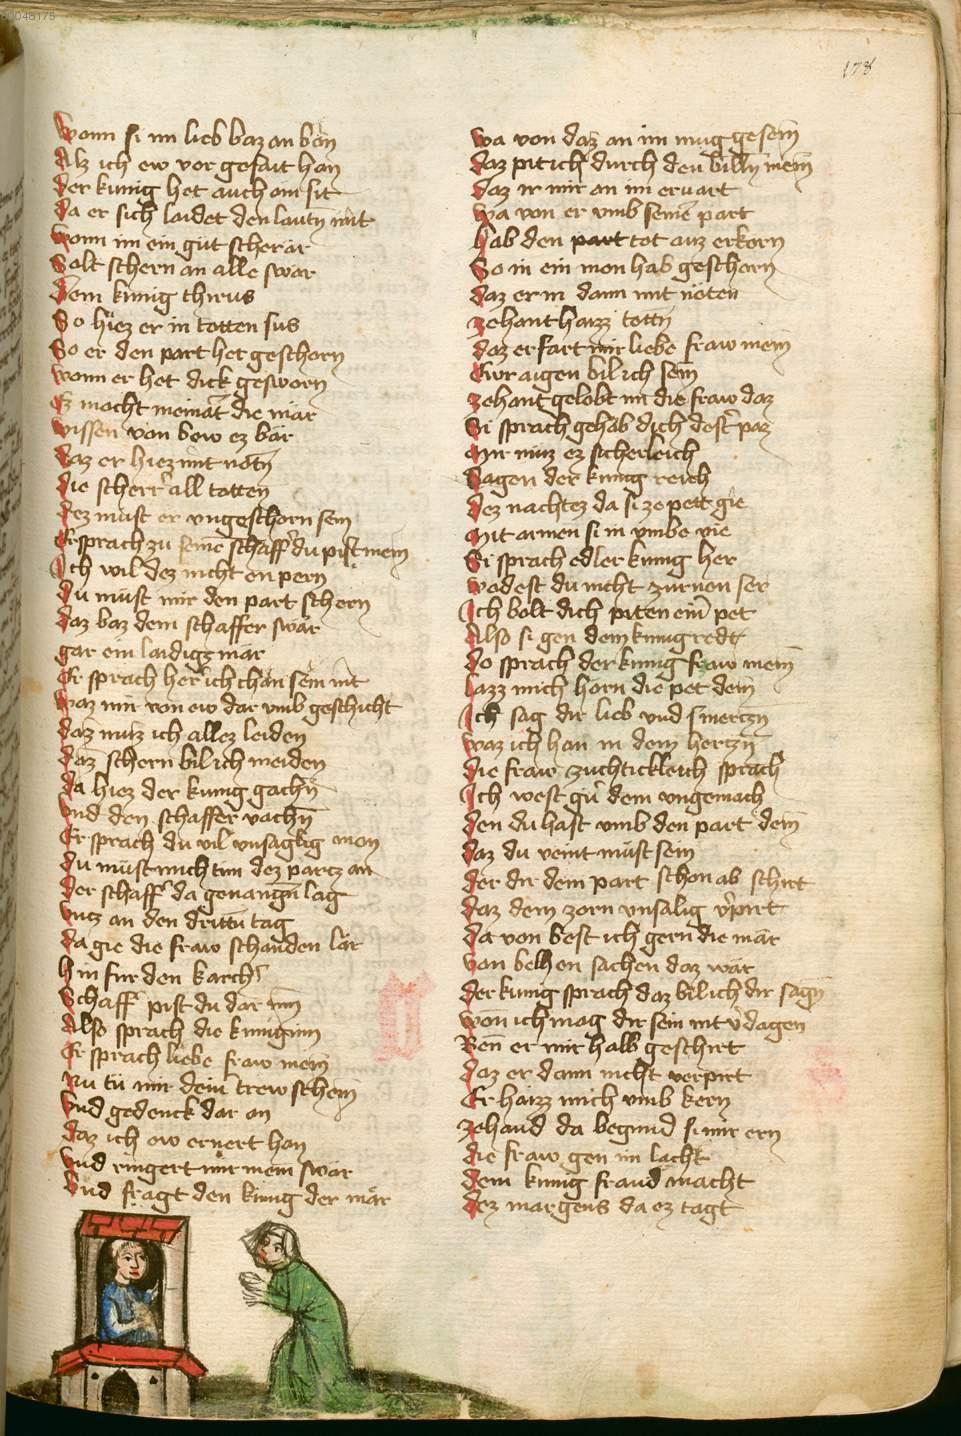 00048175
178
Wonn si im lieb baz an bon
Alz ich ew vor gesait han
Der kunig het auch ain sit
Da er sich laidet den lautn mit
Wonn im ein gut scherär
Solt schern an alle swar
Dem kunig thirus
So hiez er in totten sus
So er den part het geschorn
Wonn er het dick gesworn
Ez macht meinät die mär
Wissen von bew ez bär
Daz er hiez mit notn
Die scherr all totten
Dez must er ungeschorn sein
Er sprach zu seine schaffr du pist mein
Ich wil dez nicht enpern
Du must mir den part schern
Daz baz dem schaffer swär
gar ein laidigz mär
Er sprach herr ich chan sein nit
Waz mir von ew dar umb geschicht
Daz muz ich allez leiden
Daz schern bil ich meiden
Da hiez der kunig gachn
Und den schaffer vachn
Er sprach du vil unsaglig mon
Du must mich tun dez partz an
Der schaffr da genangn lag
Untz an den drittn tag
Da gie die fraw schauden lär
Hin fur den karchr
Schaffr pist du dar inn
Also sprach die kunginn
Er sprach liebe fraw mein
Nu tu mir dein trew schein
Und gedenck dar an
Daz ich ew ernert han
Und ringert mir mein swär
Und fragt den kunig der mär
Wa von daz an im mug gesein
Daz pit ich durch den billn mein
Daz ir mir an im ervart
Wa von er umb seine part
Hab den part tot auz erkorn
So in ein mon hab geschorn
Daz er in dann mit nöten
Zehant haizz tottn
Daz erfart mir liebe fraw mein
Ewr aigen bil ich sein
Zehant gelobt im die fraw daz
Si sprach gehab dich destr paz
Mir muz ez sicherleich
Sagen der kunig reich
Dez nachtez da si ze pett gie
Mit armen si in umbe vie
Si sprach edler kunig her
Wodest du nicht zurnen ser
Ich bolt dich piten ein pet
Also si gen dem kunig redt
Do sprach der kunig fraw mein
Lazz mich horn die pet dein
Ich sag dir lieb und smertzn
Waz ich han in dem hertzn
Die fraw zuchtickleich sprach
Ich west gern dein ungemach
Den du hast umb den part dein
Daz du veint must sein
Der dir dein part schon ab schirt
Daz dein zorn unsalig vrpirt
Da von best ich gern die mär
Von belhen sachen daz wär
Der kunig sprach daz bil ich dir sagn
Won ich mag dir sein nit vrdagen
Wenn er mir halb geschirt
Daz er dann nicht verpirt
Er haizz mich umb kern
Zehand da begund si mir ern
Die fraw gen im lacht
Dem kunig fraud macht
Dez margens da ez tagt